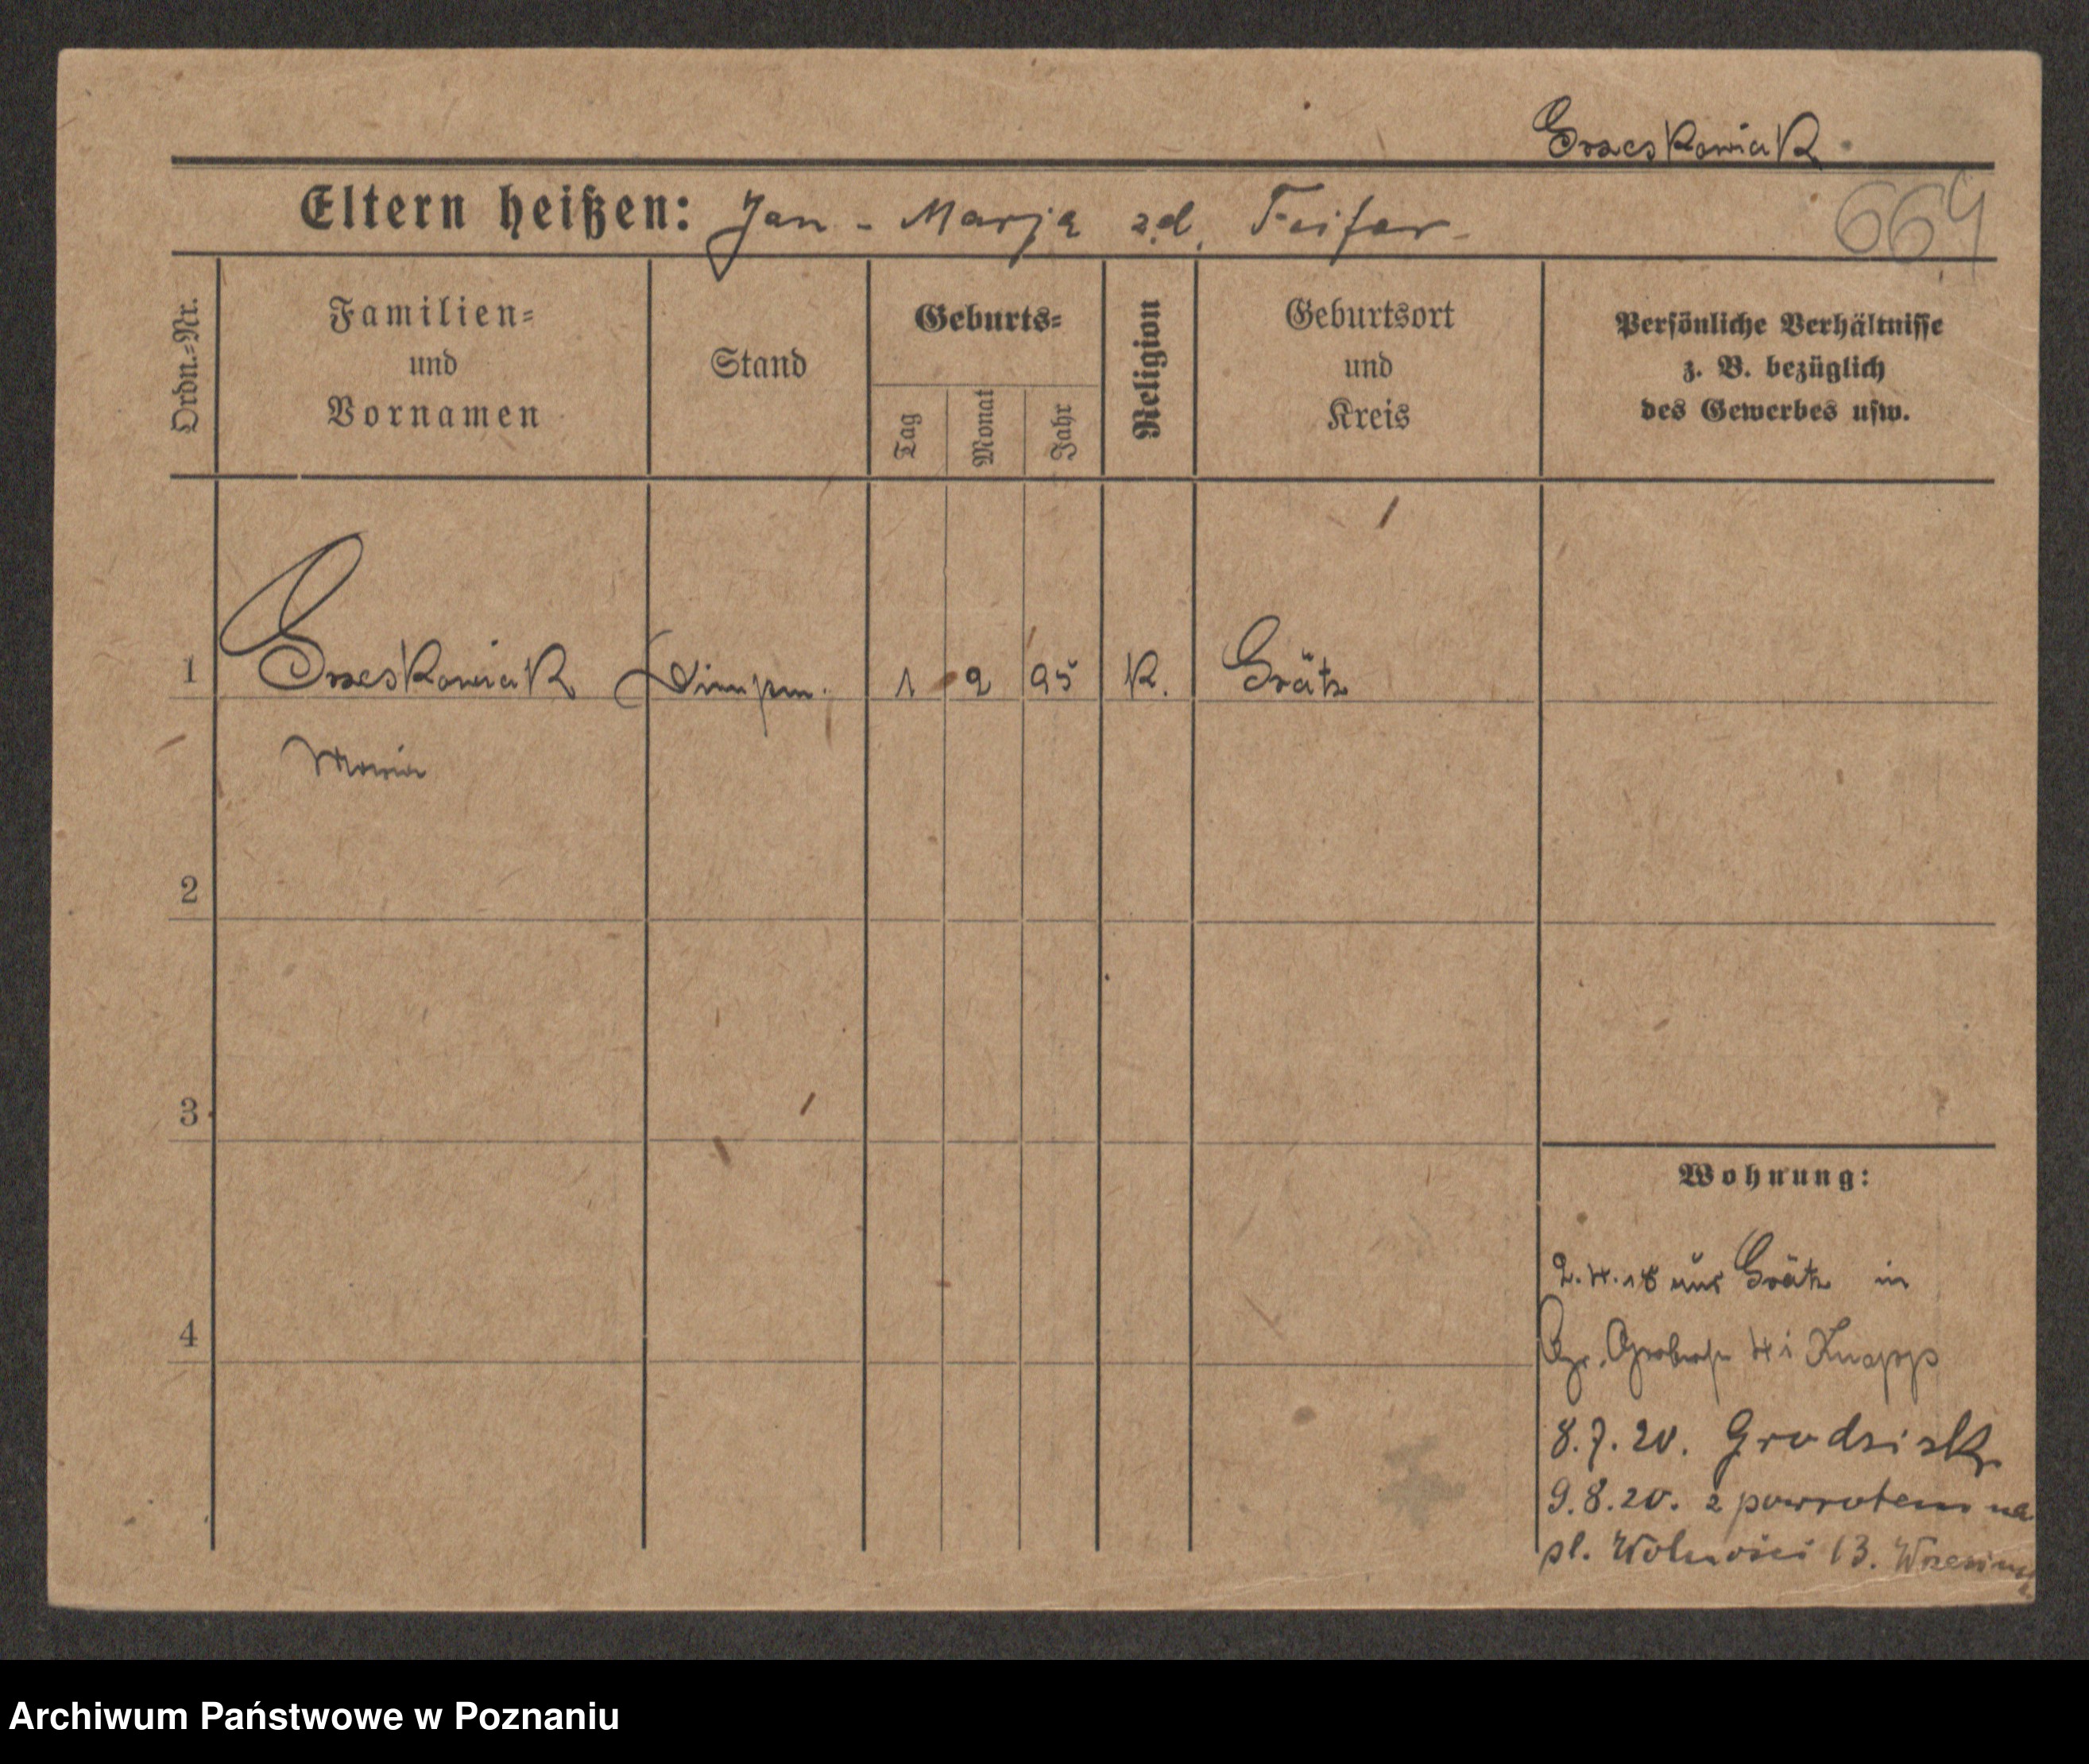 Grzeskowiak
Eltern heißen: Jan - Marja z.d. Feifer
664
Ordn.-Nr.
Familien-
und
Vornamen
Stand
Geburts-
Tag
Monat
Jahr
Religion
Geburtsort
und
Kreis
Persönliche Verhältnisse
z. B. bezüglich
des Gewerbes usw.
1 Grzeskowiak 1 2 95 K. Grätz
Maria
2
3
4
Wohnung:
2.4.18 aus Grätz in
4 i Knapp
8.7.20. Grodzisk
9.8.20. z powrotem na
pl. Wolności 13.
Archiwum Państwowe w Poznaniu